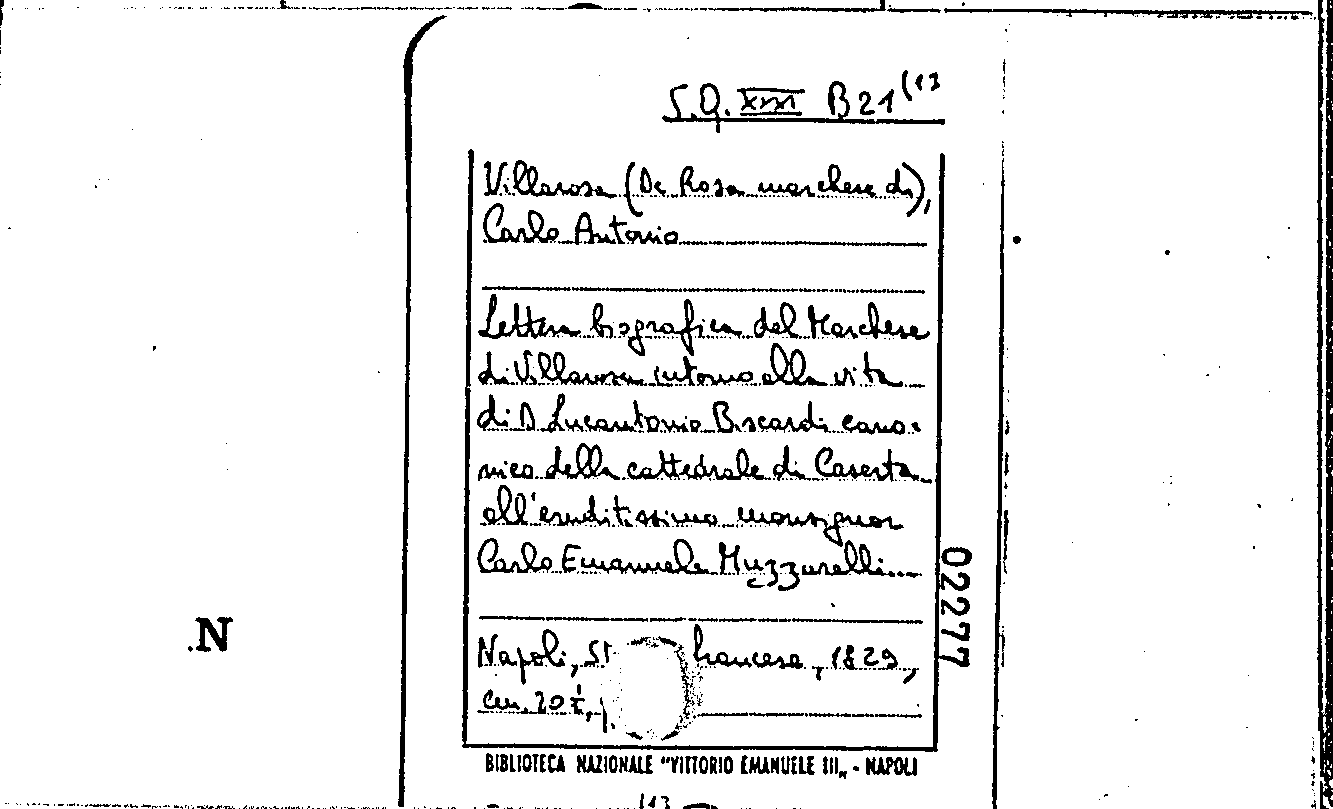 S.Q. XXXI B 21 (13
Villarosa (De Rosa marchese di),
Carlo Antonio
Lettera biografica del Marchese
di Villarosa intorno alla vita
di D Lucantonio Biscardi cano-
nico della cattedrale di Caserta
all'eruditissimo monsignor
Carlo Emanuele Muzzarelli...
02277
.N
Napoli, St francese, 1829,
cm. 20
BIBLIOTECA NAZIONALE "VITTORIO EMANUELE III„ - NAPOLI